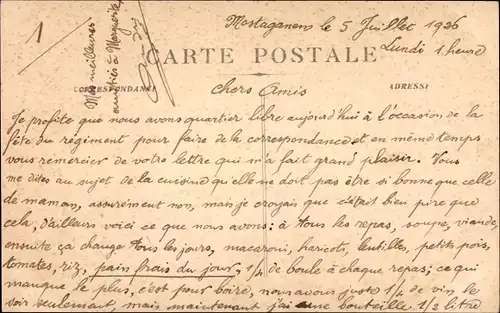 1
Mostaganem le 5 Juillet 1926
Lundi 1 heure
CARTE POSTALE
CORRESPONDANCE
ADRESSE
Mes meilleures
amitiés à Marguerite
chers Amis
Je profite que nous avons quartier libre aujourd'hui à l'occasion de la
fête du régiment pour faire de la correspondance et en même temps
vous remercier de votre lettre qui m'a fait grand plaisir. Vous
me dites au sujet de la cuisine qu'elle ne doit pas être si bonne que celle
de maman, assurément non, mais je croyais que c'était bien pire que
cela, d'ailleurs voici ce que nous avons : à tous les repas, soupe, viande,
ensuite ça change tous les jours, macaroni, haricots, lentilles, petits pois,
tomates, riz, pain frais du jour, 1/4 de boule à chaque repas ; ce qui
manque le plus, c'est pour boire, nous avons juste 1/4 de vin le
soir seulement, mais maintenant j'ai une bouteille 1/2 litre